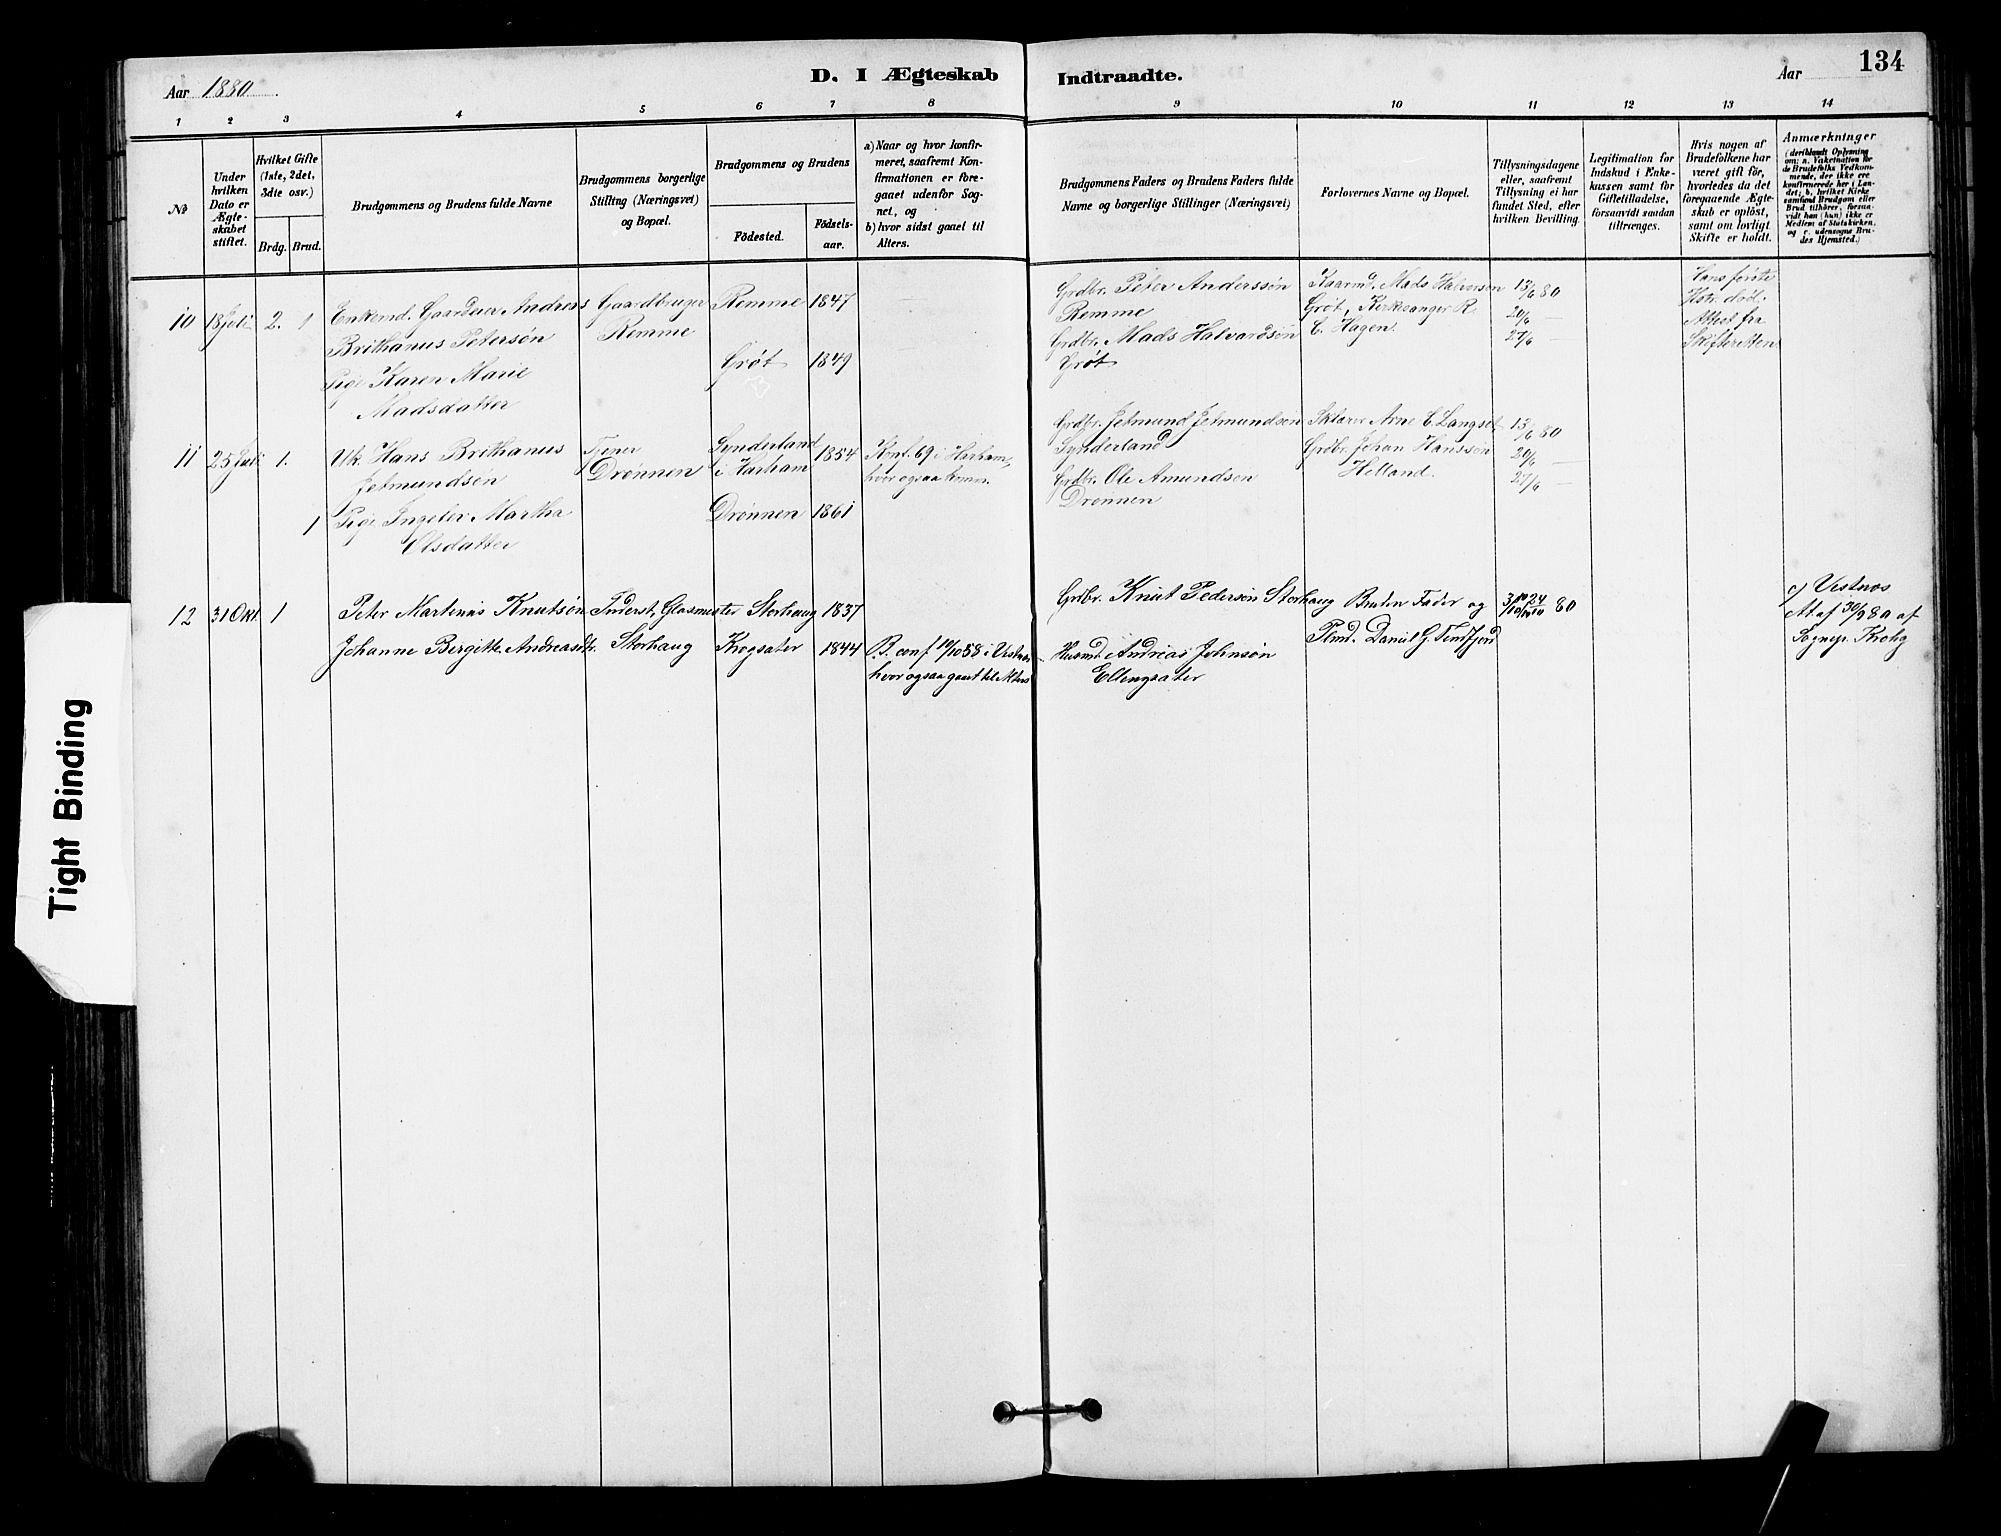 134
Aar 1880
D. I Ægteskab
Indtraadte.
Aar
1 2 3 4 5 6 7 8 9 10 11 12 13 14
No
Under
hvilken
Dato er
Ægte-
skabet
stiftet.
Hvilket Gifte
(1ste, 2det,
3die osv.)
Brdg. Brud.
Brudgommens og Brudens fulde Navne
Brudgommens borgerlige
Stilling (Næringsvei)
og Bopæl.
Brudgommens og Brudens
Födested.
Födsels-
aar.
a) Naar og hvor konfir-
meret, saafremt Kon-
firmationen er fore-
gaaet udenfor Sog-
net, og
b) hvor sidst gaaet til
Alters.
Brudgommens Faders og Brudens Faders fulde
Navne og borgerlige Stillinger (Næringsvei)
Forlovernes Navne og Bopæl.
Tillysningsdagene
eller, saafremt
Tillysning ei har
fundet Sted, efter
hvilken Bevilling.
Legitimation for
Indskud i Enke-
kassen samt for
Giftetilladelse,
forsaavidt saadan
tiltrænges.
Hvis nogen af
Brudefolkene har
været gift för,
hvorledes da det
foregaaende Ægte-
skab er oplöst,
samt om lovligt
Skifte er holdt.
Anmærkninger
(deriblandt Oplysning
om: a. Vakcination for
de Brudefolks Vedkom-
mende, der ikke ere
konfirmerede her i Lan-
det; b. hvilket Kirke
samfund Brudgom eller
Brud tilhörer, forsaa-
vidt han (hun) ikke er
Medlem af Statskirken,
og c. udensogns Bru-
des Hjemsted.)
10 18 Juli 2. 1
Enkemd. Gaardbr. Andreas
Brithanus Petersön
Pige Karen Marie
Madsdatter
Gaardbruger
Remme
Remme 1847
Gröt 1849
Grdbr. Peter Anderssön
Remme
Grdbr. Mads Halvardsön
Gröt
Kaarmd. Mads Halversen
Gröt, Kirkesanger R.
E. Hagen
13/6 80
20/6 —
27/6 —
Hans förste
Hstr. död.
Attest fra
Skifteretten
11 25 Juli 1. 1
Uk. Hans Brithanus
Jetmundsön
Pige Ingeler Martha
Olsdatter
Tjener
Drönnen
Synderland
i Harham 1854
Drönnen 1861
Konf. 69 i Harham,
hvor ogsaa komm.
Grdbr. Jetmund Jetmundsön
Synderland
Grdbr. Ole Amundsen
Drönnen
Sklærer Arne E. Langset
Grdbr. Johan Hanssön
Helland.
13/6 80
20/6 —
27/6 —
12 31 Okt. 1
Peter Martinus Knutsön
Johanne Bergitte Andreasdtr.
Inderst, Glasmester
Storhaug
Storhaug 1837
Kogsæter 1844
B. conf 10/10 58 i Vestnæs
hvor ogsaa gaaet til Alters
Grdbr. Knut Pedersön Storhaug
Husmd. Andreas Johnsön
Ellengsæter
Bruden Fader og
Plmd. Daniel G. Tenfjord
c) Vestnes
At af 30/9 80 af
Sognepr. Krohg
Tight Binding